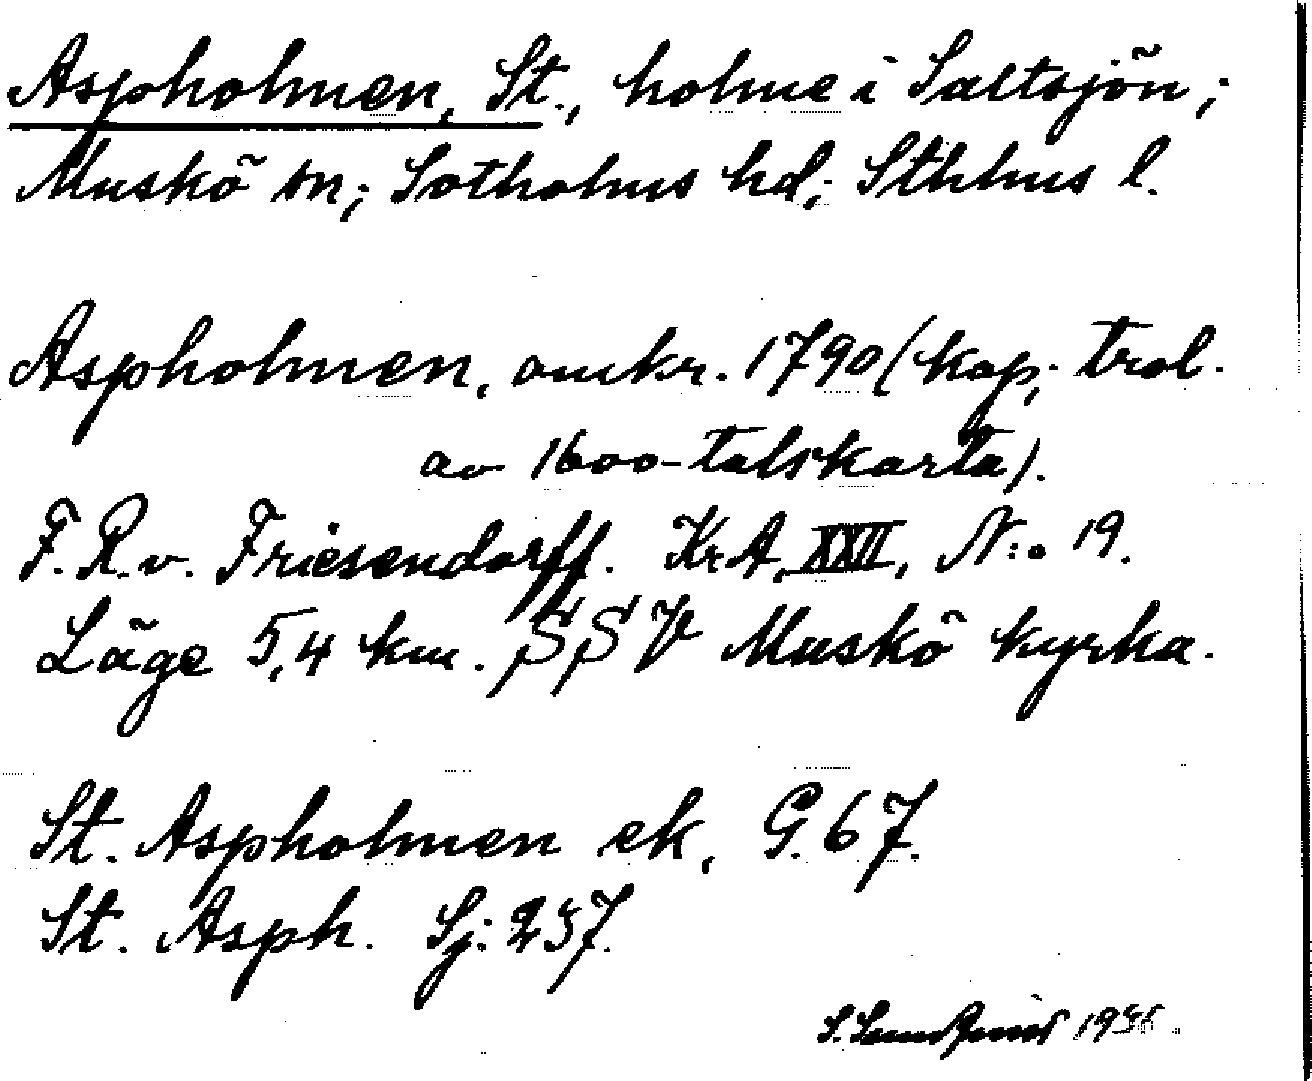 Aspholmen, St., holme i Saltsjön;
Muskö sn; Sotholms hd; Sthlms l.
Aspholmen, omkr. 1790 (kop, trol.
av 1600-talskarta).
F. R. v. Friesendorff. Kr.A, XXII, N:o 19.
Läge 5,4 km. SSV Muskö kyrka.
St. Aspholmen ek, G. 67.
St. Asph. Sj: 237.
S.